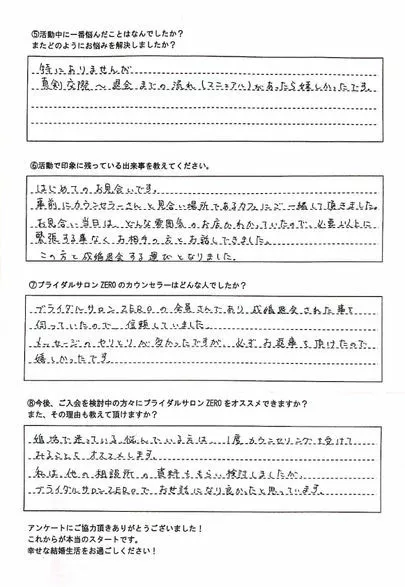 ⑤活動中に一番悩んだことはなんでしたか？
またどのようにお悩みを解決しましたか？
特にありませんが
真剣交際～退会までの流れ(マニュアル)があったら嬉しかったです。
⑥活動で印象に残っている出来事を教えてください。
はじめてのお見合いです。
事前にカウンセラーさんと見合い場所であるカフェにご一緒して頂きました。
お見合い当日は、どんな雰囲気のお店かわかっていたので、必要以上に
緊張する事なくお相手の方とお話しできました。
この方と成婚退会する運びとなりました。
⑦ブライダルサロンZEROのカウンセラーはどんな人でしたか？
ブライダルサロンZEROの会員さんであり成婚退会された事を
伺っていたので信頼していました。
メッセージのやりとりが多かったですが、必ずお返事を頂けたので
嬉しかったです。
⑧今後、ご入会を検討中の方々にブライダルサロンZEROをオススメできますか？
また、その理由も教えて頂けますか？
婚活で迷っている悩んでいる方は、1度カウンセリングを受けて
みることをオススメします。
私は他の相談所の資料ももらい検討しましたが、
ブライダルサロンZEROでお世話になり良かったと思っています。
アンケートにご協力頂きありがとうございました！
これからが本当のスタートです。
幸せな結婚生活をお過ごしください！